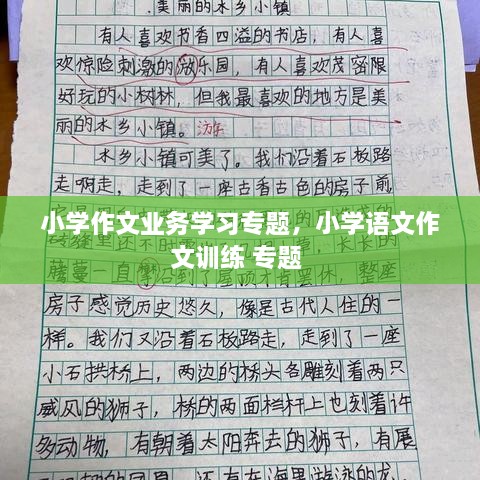 美丽的水乡小镇
有人喜欢书香四溢的书店，有人喜
欢惊险刺激的放乐园，有人喜欢茂密限
好玩的小树林，但我最喜欢的地方是美
丽的水乡小镇。游
水乡小镇可美了。我们沿着石板路
走啊走，走到了一座古香古色的房子前
小学作文业务学习专题，小学语文作
文训练 专题
长长的
藤蔓一直 到了屋顶才肯罢休，整座
房子感觉历史悠久，像是古代人住的一
样。我们又沿着石板路走，走到了一座
小石拱桥上，两边的桥头各雕刻着两只
威风的狮子，桥的两面栏杆上也刻着许
多动物，有朝着太阳奔去的狮子，有展
还有在海里游泳的龙